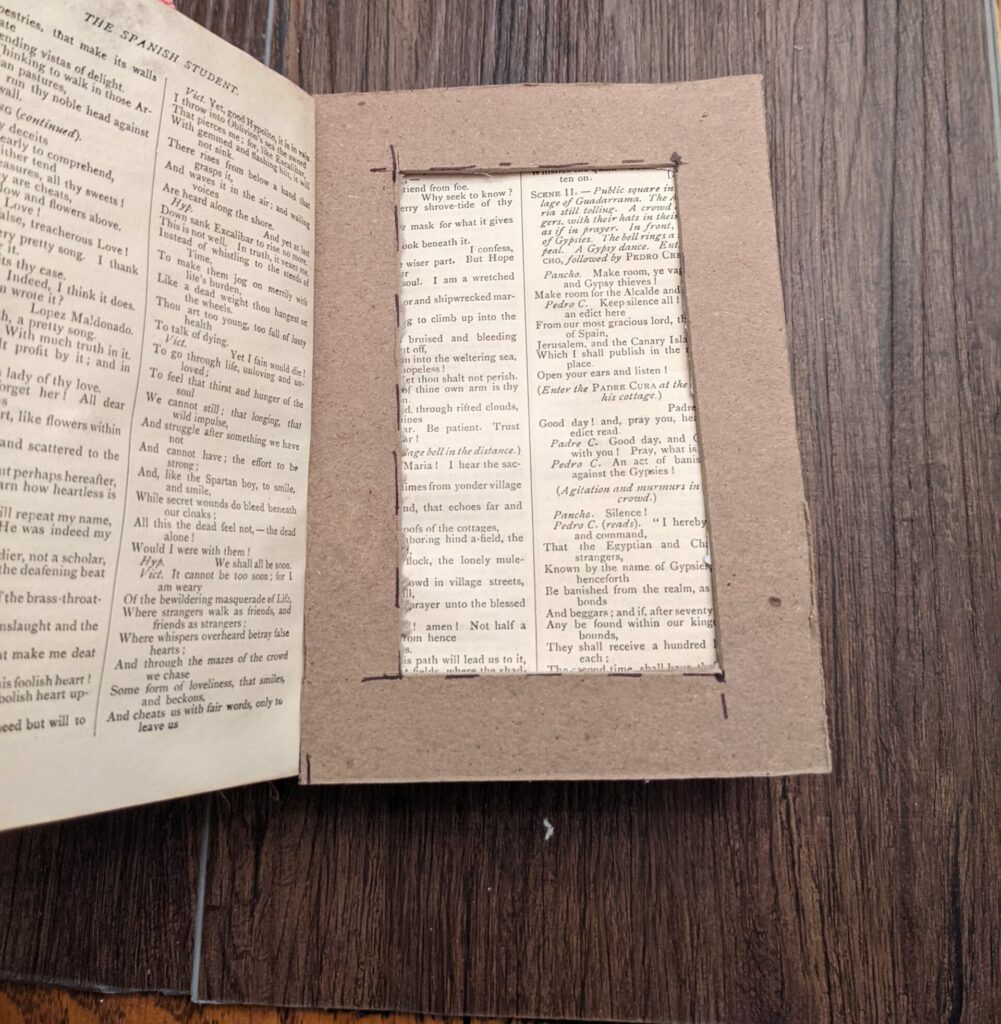 THE SPANISH STUDENT.
pestries, that make its walls
ending vistas of delight.
Thinking to walk in those Ar-
an pastures,
run thy noble head against
wall.
(continued).
deceits
early to comprehend,
ither tend
easures, all thy sweets!
y are cheats,
low and flowers above.
Love!
alse, treacherous Love!
ery pretty song. I thank
it.
ts thy case.
Indeed, I think it does.
wrote it?
Lopez Maldonado.
h, a pretty song.
With much truth in it.
lt profit by it; and in
lady of thy love.
orget her! All dear
rt, like flowers within
and scattered to the
ut perhaps hereafter,
arn how heartless is
ill repeat my name,
He was indeed my
dier, not a scholar,
the deafening beat
f the brass-throat-
nslaught and the
at make me deaf
is foolish heart!
oolish heart up-
need but will to
Vict. Yet, good Hypolito, it is in vain
I throw into Oblivion's sea the sword
That pierces me; for, like Excalibar,
With gemmed and flashing hilt, it will
not sink.
There rises from below a hand that
grasps it,
And waves it in the air; and wailing
voices
Are heard along the shore.
Hyp. And yet at last
Down sank Excalibar to rise no more.
This is not well. In truth, it vexes me.
Instead of whistling to the steeds of
Time,
To make them jog on merrily with
life's burden,
Like a dead weight thou hangest on
the wheels.
Thou art too young, too full of lusty
health
To talk of dying.
Vict. Yet I fain would die!
To go through life, unloving and un-
loved;
To feel that thirst and hunger of the
soul
We cannot still; that longing, that
wild impulse,
And struggle after something we have
not
And cannot have; the effort to be
strong;
And, like the Spartan boy, to smile,
and smile,
While secret wounds do bleed beneath
our cloaks;
All this the dead feel not,—the dead
alone!
Would I were with them!
Hyp. We shall all be soon.
Vict. It cannot be too soon; for I
am weary
Of the bewildering masquerade of Life,
Where strangers walk as friends, and
friends as strangers;
Where whispers overheard betray false
hearts;
And through the mazes of the crowd
we chase
Some form of loveliness, that smiles,
and beckons,
And cheats us with fair words, only to
leave us
riend from foe.
Why seek to know?
erry shrove-tide of thy
mask for what it gives
ook beneath it.
I confess,
wiser part. But Hope
soul. I am a wretched
or and shipwrecked mar-
g to climb up into the
bruised and bleeding
t off,
n into the weltering sea,
opeless!
et thou shalt not perish.
of thine own arm is thy
n.
d, through rifted clouds,
ines
ar. Be patient. Trust
ar!
lage bell in the distance.)
Maria! I hear the sac-
imes from yonder village
nd, that echoes far and
roofs of the cottages,
aboring hind a-field, the
flock, the lonely mule-
owd in village streets,
ll,
prayer unto the blessed
! amen! Not half a
rom hence
is path will lead us to it,
fields, where the shad-
ten on.
SCENE II. — Public square in
lage of Guadarrama. The A
ria still tolling. A crowd
gers, with their hats in their
as if in prayer. In front,
of Gypsies. The bell rings a
peal. A Gypsy dance. Ent
CHO, followed by PEDRO CRE
Pancho. Make room, ye vag
and Gypsy thieves!
Make room for the Alcalde and
Pedro C. Keep silence all!
an edict here
From our most gracious lord, th
of Spain,
Jerusalem, and the Canary Isla
Which I shall publish in the
place.
Open your ears and listen!
(Enter the PADRE CURA at the
his cottage.)
Padre
Good day! and, pray you, hea
edict read.
Padre C. Good day, and G
with you! Pray, what is
Pedro C. An act of banis
against the Gypsies!
(Agitation and murmurs in
crowd.)
Pancho. Silence!
Pedro C. (reads). "I hereby
and command,
That the Egyptian and Ch
strangers,
Known by the name of Gypsies
henceforth
Be banished from the realm, as
bonds
And beggars; and if, after seventy
Any be found within our king
bounds,
They shall receive a hundred
each;
The second time, shall have th